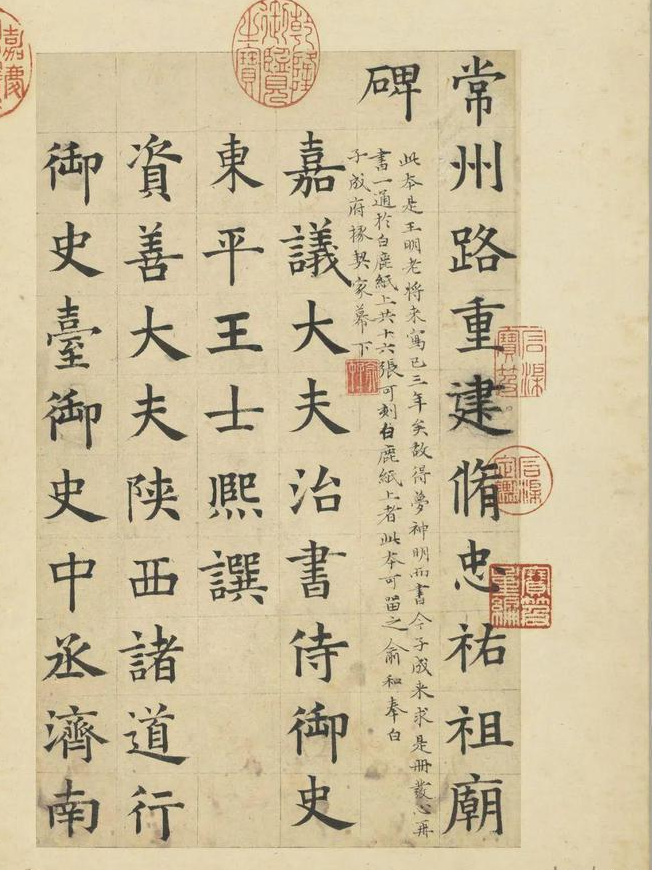 常州路重建脩忠祐祖廟
碑
此本是王明老將來寫已三年矣故得夢神明而書今子成來求是冊發心再
書一通於白鹿紙上共十六張可刻白鹿紙上者此本可留之俞和奉白
子成府掾契家幕下
嘉議大夫治書侍御史
東平王士熙譔
資善大夫陝西諸道行
御史臺御史中丞濟南
乾隆御覽之寶
嘉慶
石渠寶笈
石渠定鑑
寶笈重編